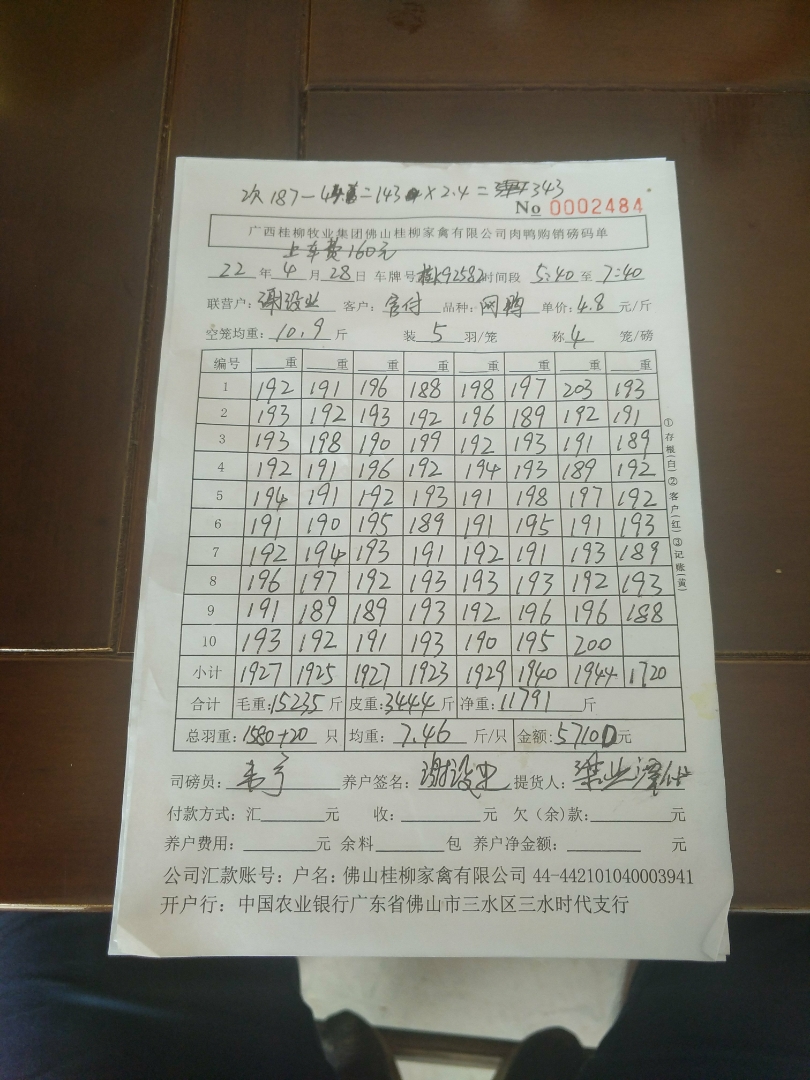 次187-44=143×2.4=343
No 0002484
广西桂柳牧业集团佛山桂柳家禽有限公司肉鸭购销磅码单
上车费160元
22年4月28日 车牌号 桂K92582 时间段 5:40至7:40
联营户: 客户: 品种: 单价:4.8元/斤
空笼均重:10.9斤 装5羽/笼 称4笼/磅
编号 重 重 重 重 重 重 重 重
1 192 191 196 188 198 197 203 193
2 193 192 193 192 196 189 192 191
3 193 198 190 199 192 193 191 189
4 192 191 196 192 194 193 189 192
5 194 191 192 193 191 198 197 192
6 191 190 195 189 191 195 191 193
7 192 194 193 191 192 191 193 189
8 196 197 192 193 193 193 192 193
9 191 189 189 193 192 196 196 188
10 193 192 191 193 190 195 200
小计 1927 1925 1927 1923 1929 1940 1944 1720
合计 毛重:15235斤 皮重:3444斤 净重:11791斤
总羽重:1580+20只 均重:7.46斤/只 金额:57100元
司磅员: 养户签名: 提货人:
付款方式:汇 元 收: 元 欠(余)款: 元
养户费用: 元 余料 包 养户净金额: 元
公司汇款账号:户名:佛山桂柳家禽有限公司 44-442101040003941
开户行:中国农业银行广东省佛山市三水区三水时代支行
①存根(白)②客户(红)③记账(黄)